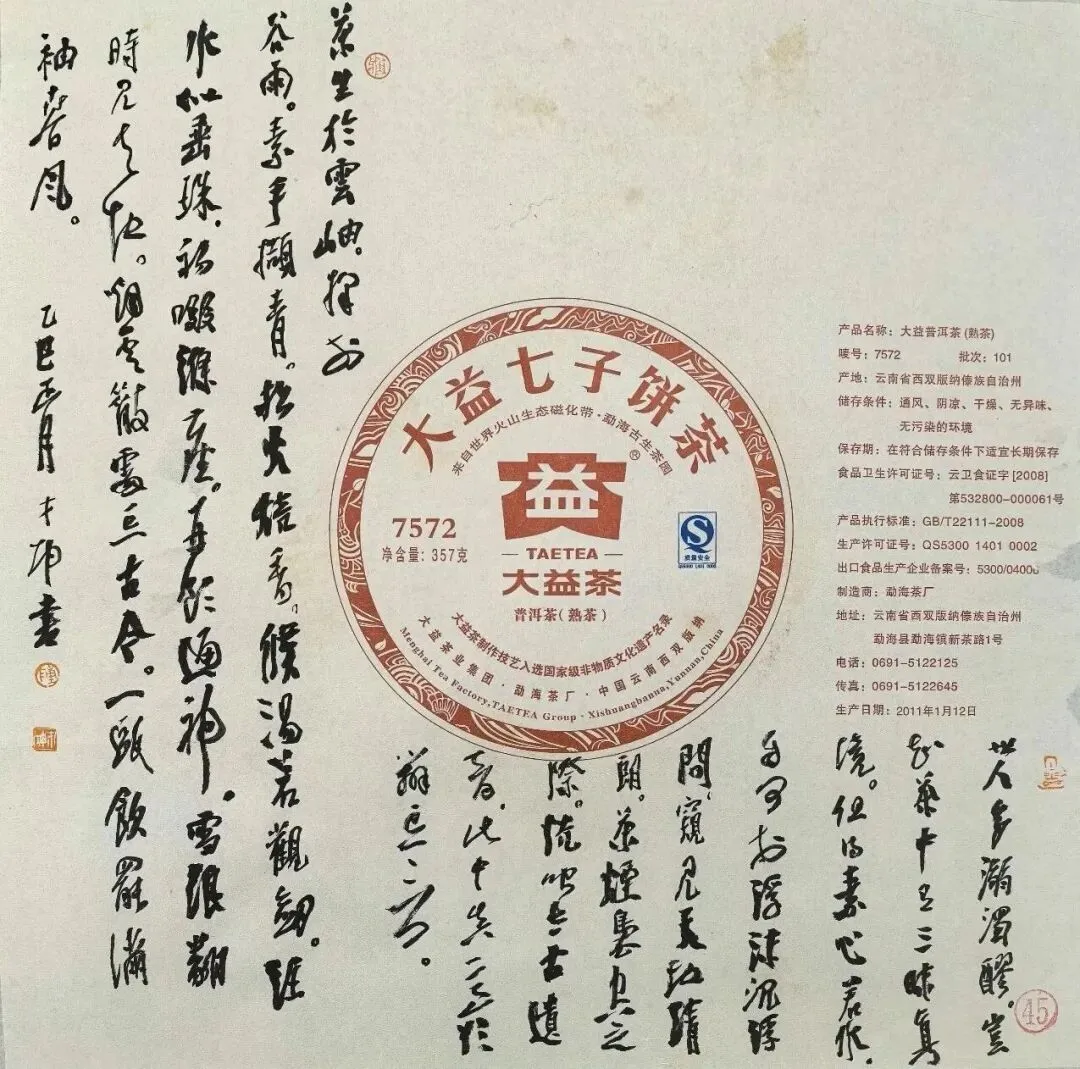 茶生於雲岫。擇於
谷雨。素手擷青。松火焙香。候湯若觀劍。註
水似垂珠。初啜滌塵。再飲通神。雪浪翻
時見天地。烟雲散處忘古今。一甌飲罷滿
袖春風。
乙巳正月
書
大益七子饼茶
来自世界火山生态磁化带·勐海古生茶园
益
®
7572
净含量：357克
TAETEA
大益茶
普洱茶（熟茶）
S
质量安全
QS5300 1401 0002
大益茶制作技艺入选国家级非物质文化遗产名录
大益茶业集团·勐海茶厂·中国云南西双版纳
Menghai Tea Factory,TAETEA Group·Xishuangbanna,Yunnan,China
产品名称：大益普洱茶(熟茶)
唛号：7572 批次：101
产地：云南省西双版纳傣族自治州
储存条件：通风、阴凉、干燥、无异味、
无污染的环境
保存期：在符合储存条件下适宜长期保存
食品卫生许可证号：云卫食证字[2008]
第532800-000061号
产品执行标准：GB/T22111-2008
生产许可证号：QS5300 1401 0002
出口食品生产企业备案号：5300/0400
制造商：勐海茶厂
地址：云南省西双版纳傣族自治州
勐海县勐海镇新茶路1号
电话：0691-5122125
传真：0691-5122645
生产日期：2011年1月12日
世人多溺濁醪。豈
知茶中有三昧真
境。但得素心若水。
自可於浮沫沉浮
間，窺見天地晴
朗。茶煙裊裊之
際。流
音，此中真意欲
辯已忘言。
45